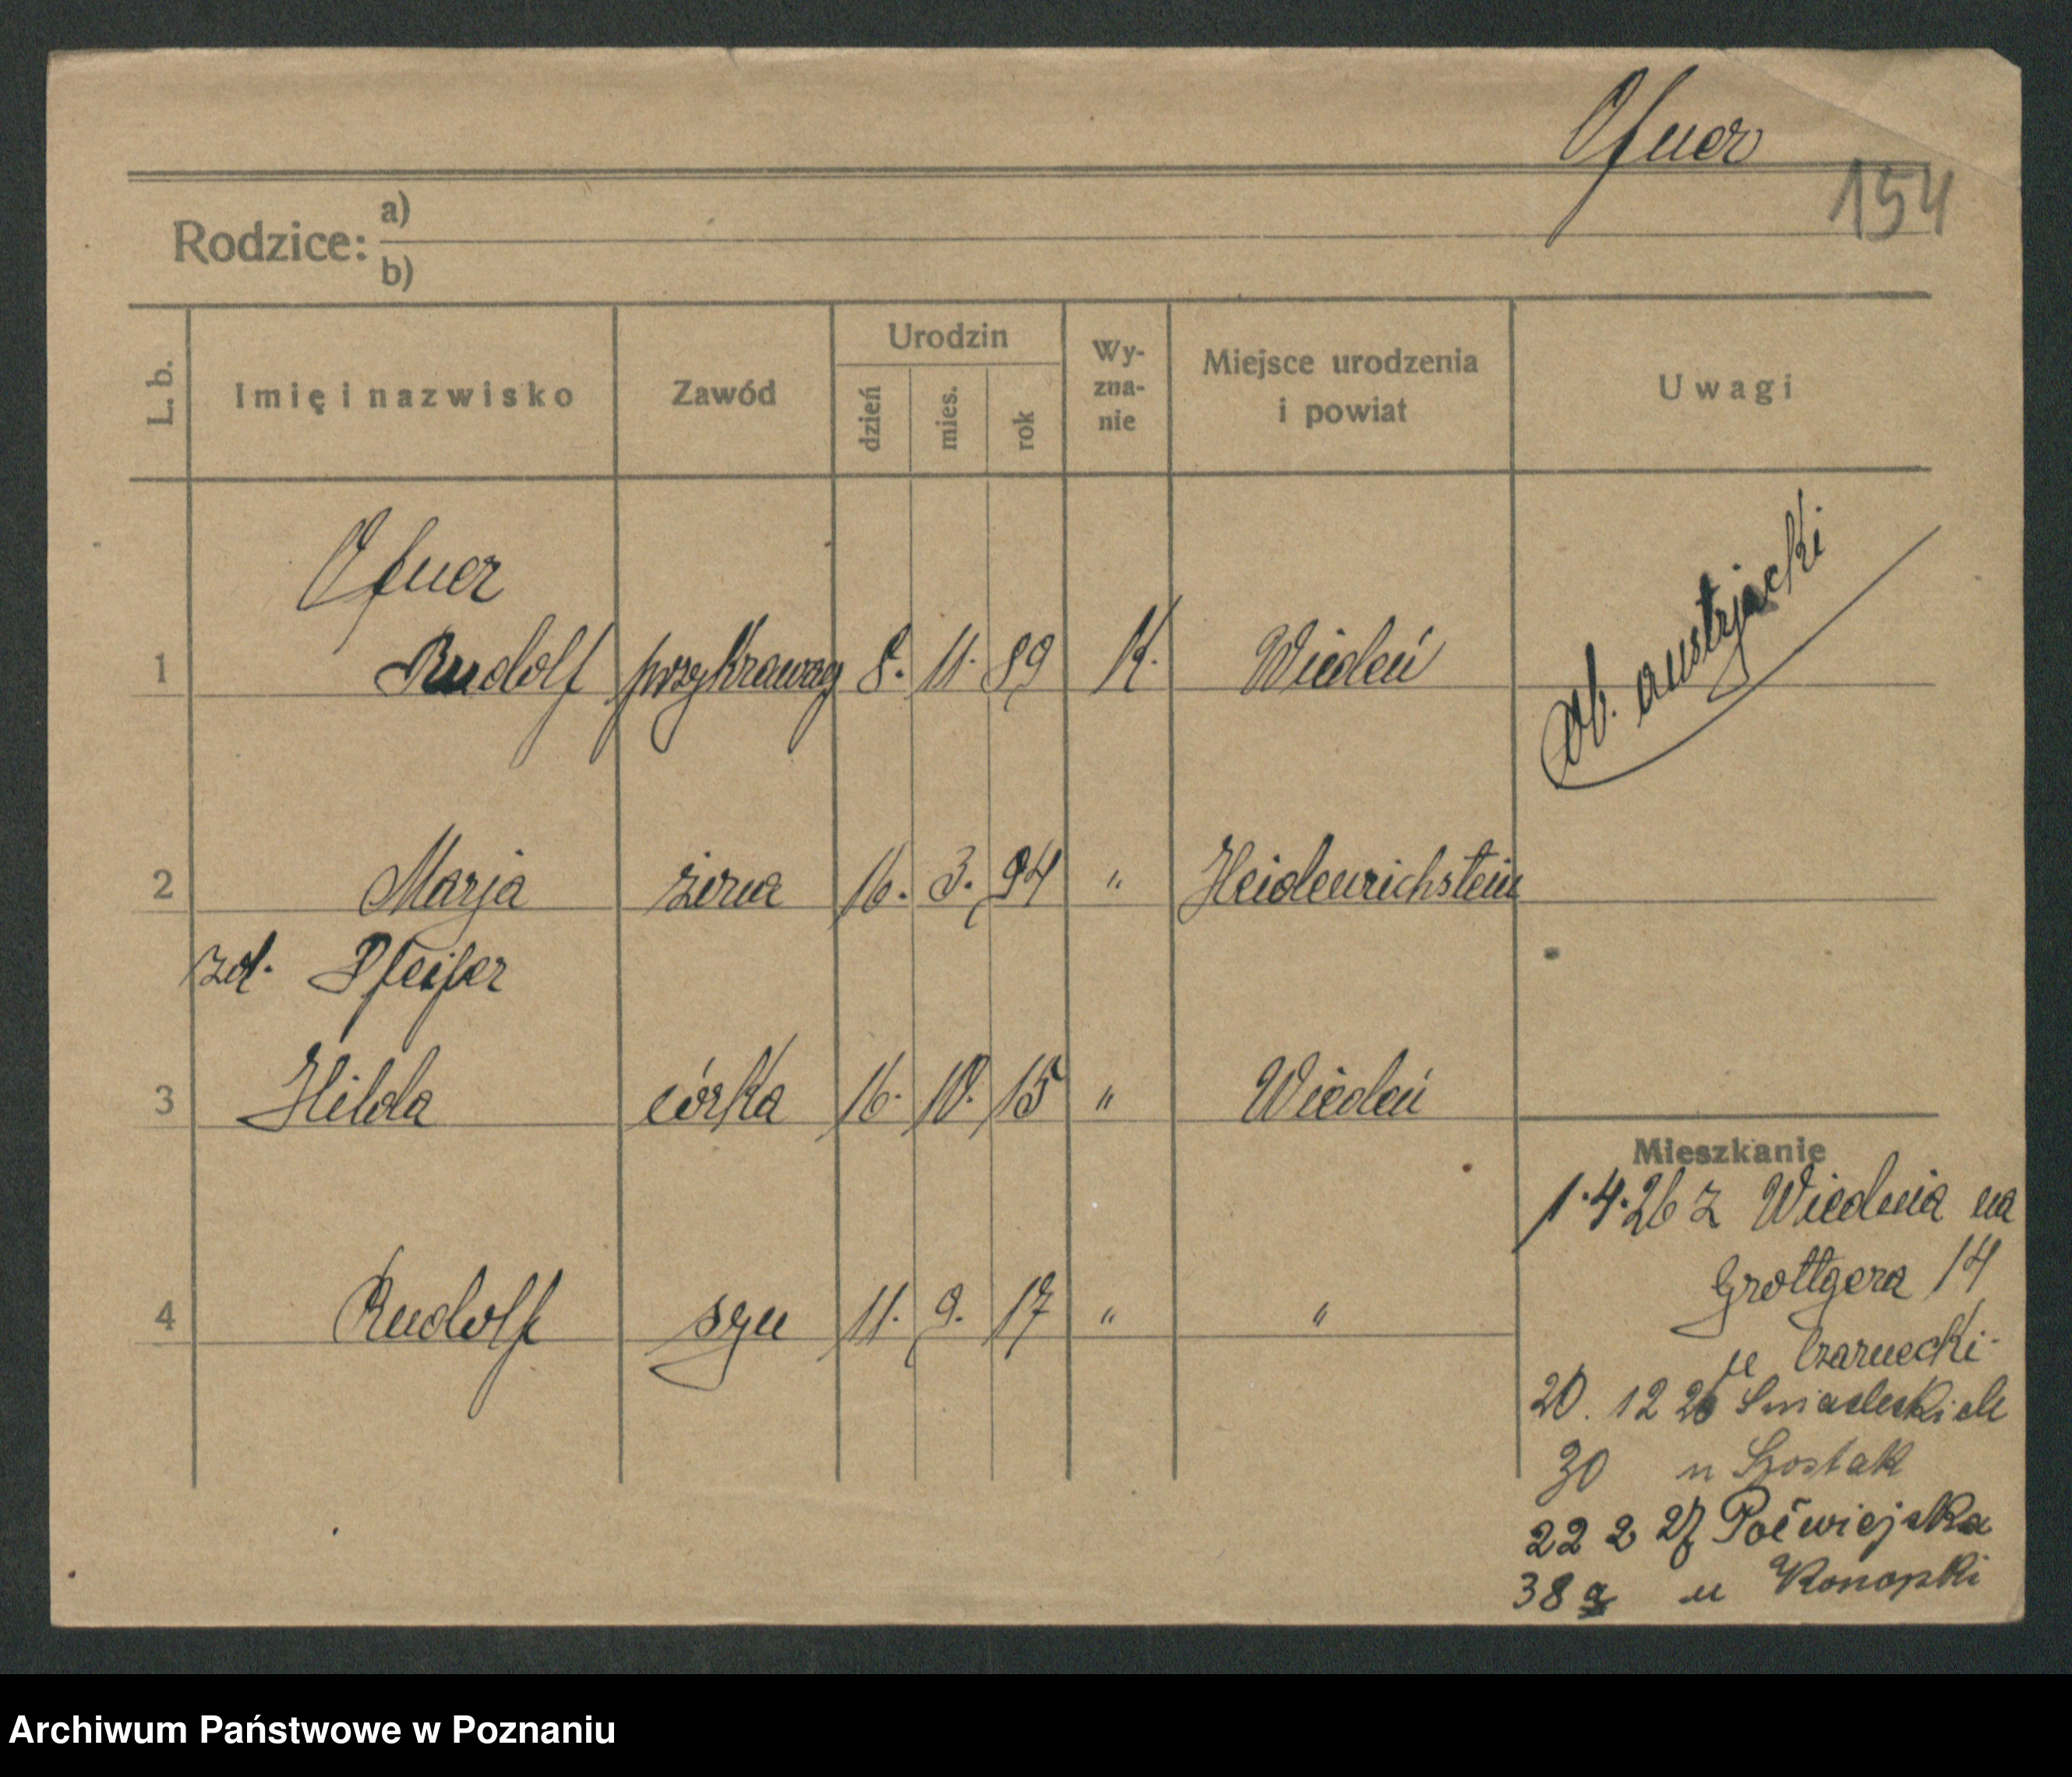 Ofner
154
Rodzice: a)
b)
L. b. Imię i nazwisko Zawód Urodzin dzień mies. rok Wy-zna-nie Miejsce urodzenia i powiat Uwagi
Ofner
1 Rudolf przykrawacz 8. 11. 89 K. Wiedeń Ob. austrjacki
2 Marja żona 16. 3. 94 " Heidenrichstein
zd. Pfeifer
3 Hilda córka 16. 10. 15 " Wiedeń
4 Rudolf syn 11. 9. 17 " "
Mieszkanie
1.4.26 z Wiednia na
Grottgera 14
u Czarnecki-
20. 12 26 Śniadeckich
30 u Szostak
22 2 27 Półwiejska
38 a u Konopki
Archiwum Państwowe w Poznaniu